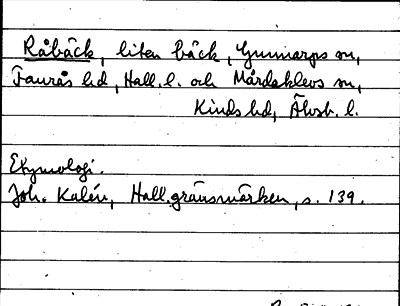 Råbäck, liten bäck, Gunnarps sn,
Faurås hd, Hall. l. och Mårdaklevs sn,
Kinds hd, Älvsb. l.
Etymologi.
Joh. Kalén, Hall. gränsmärken, s. 139.